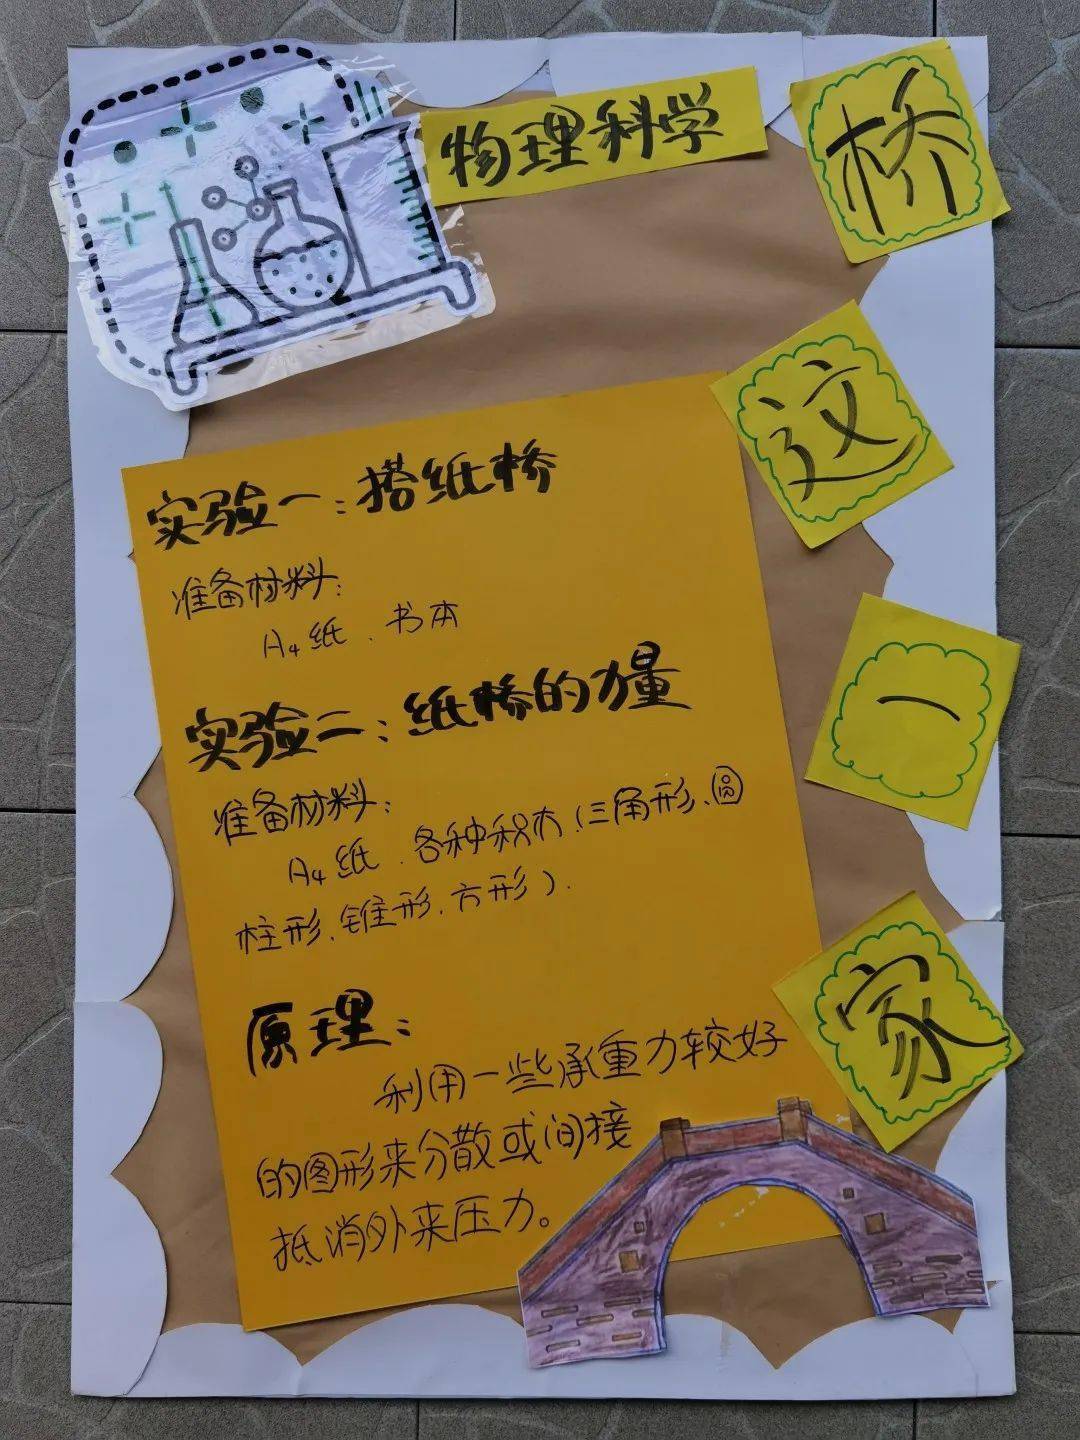 物理科学
桥
这
一
家
实验一：搭纸桥
准备材料：
A4纸、书本
实验二：纸桥的力量
准备材料：
A4纸、各种积木（三角形、圆
柱形、锥形、方形）.
原理：
利用一些承重力较好
的图形来分散或间接
抵消外来压力。